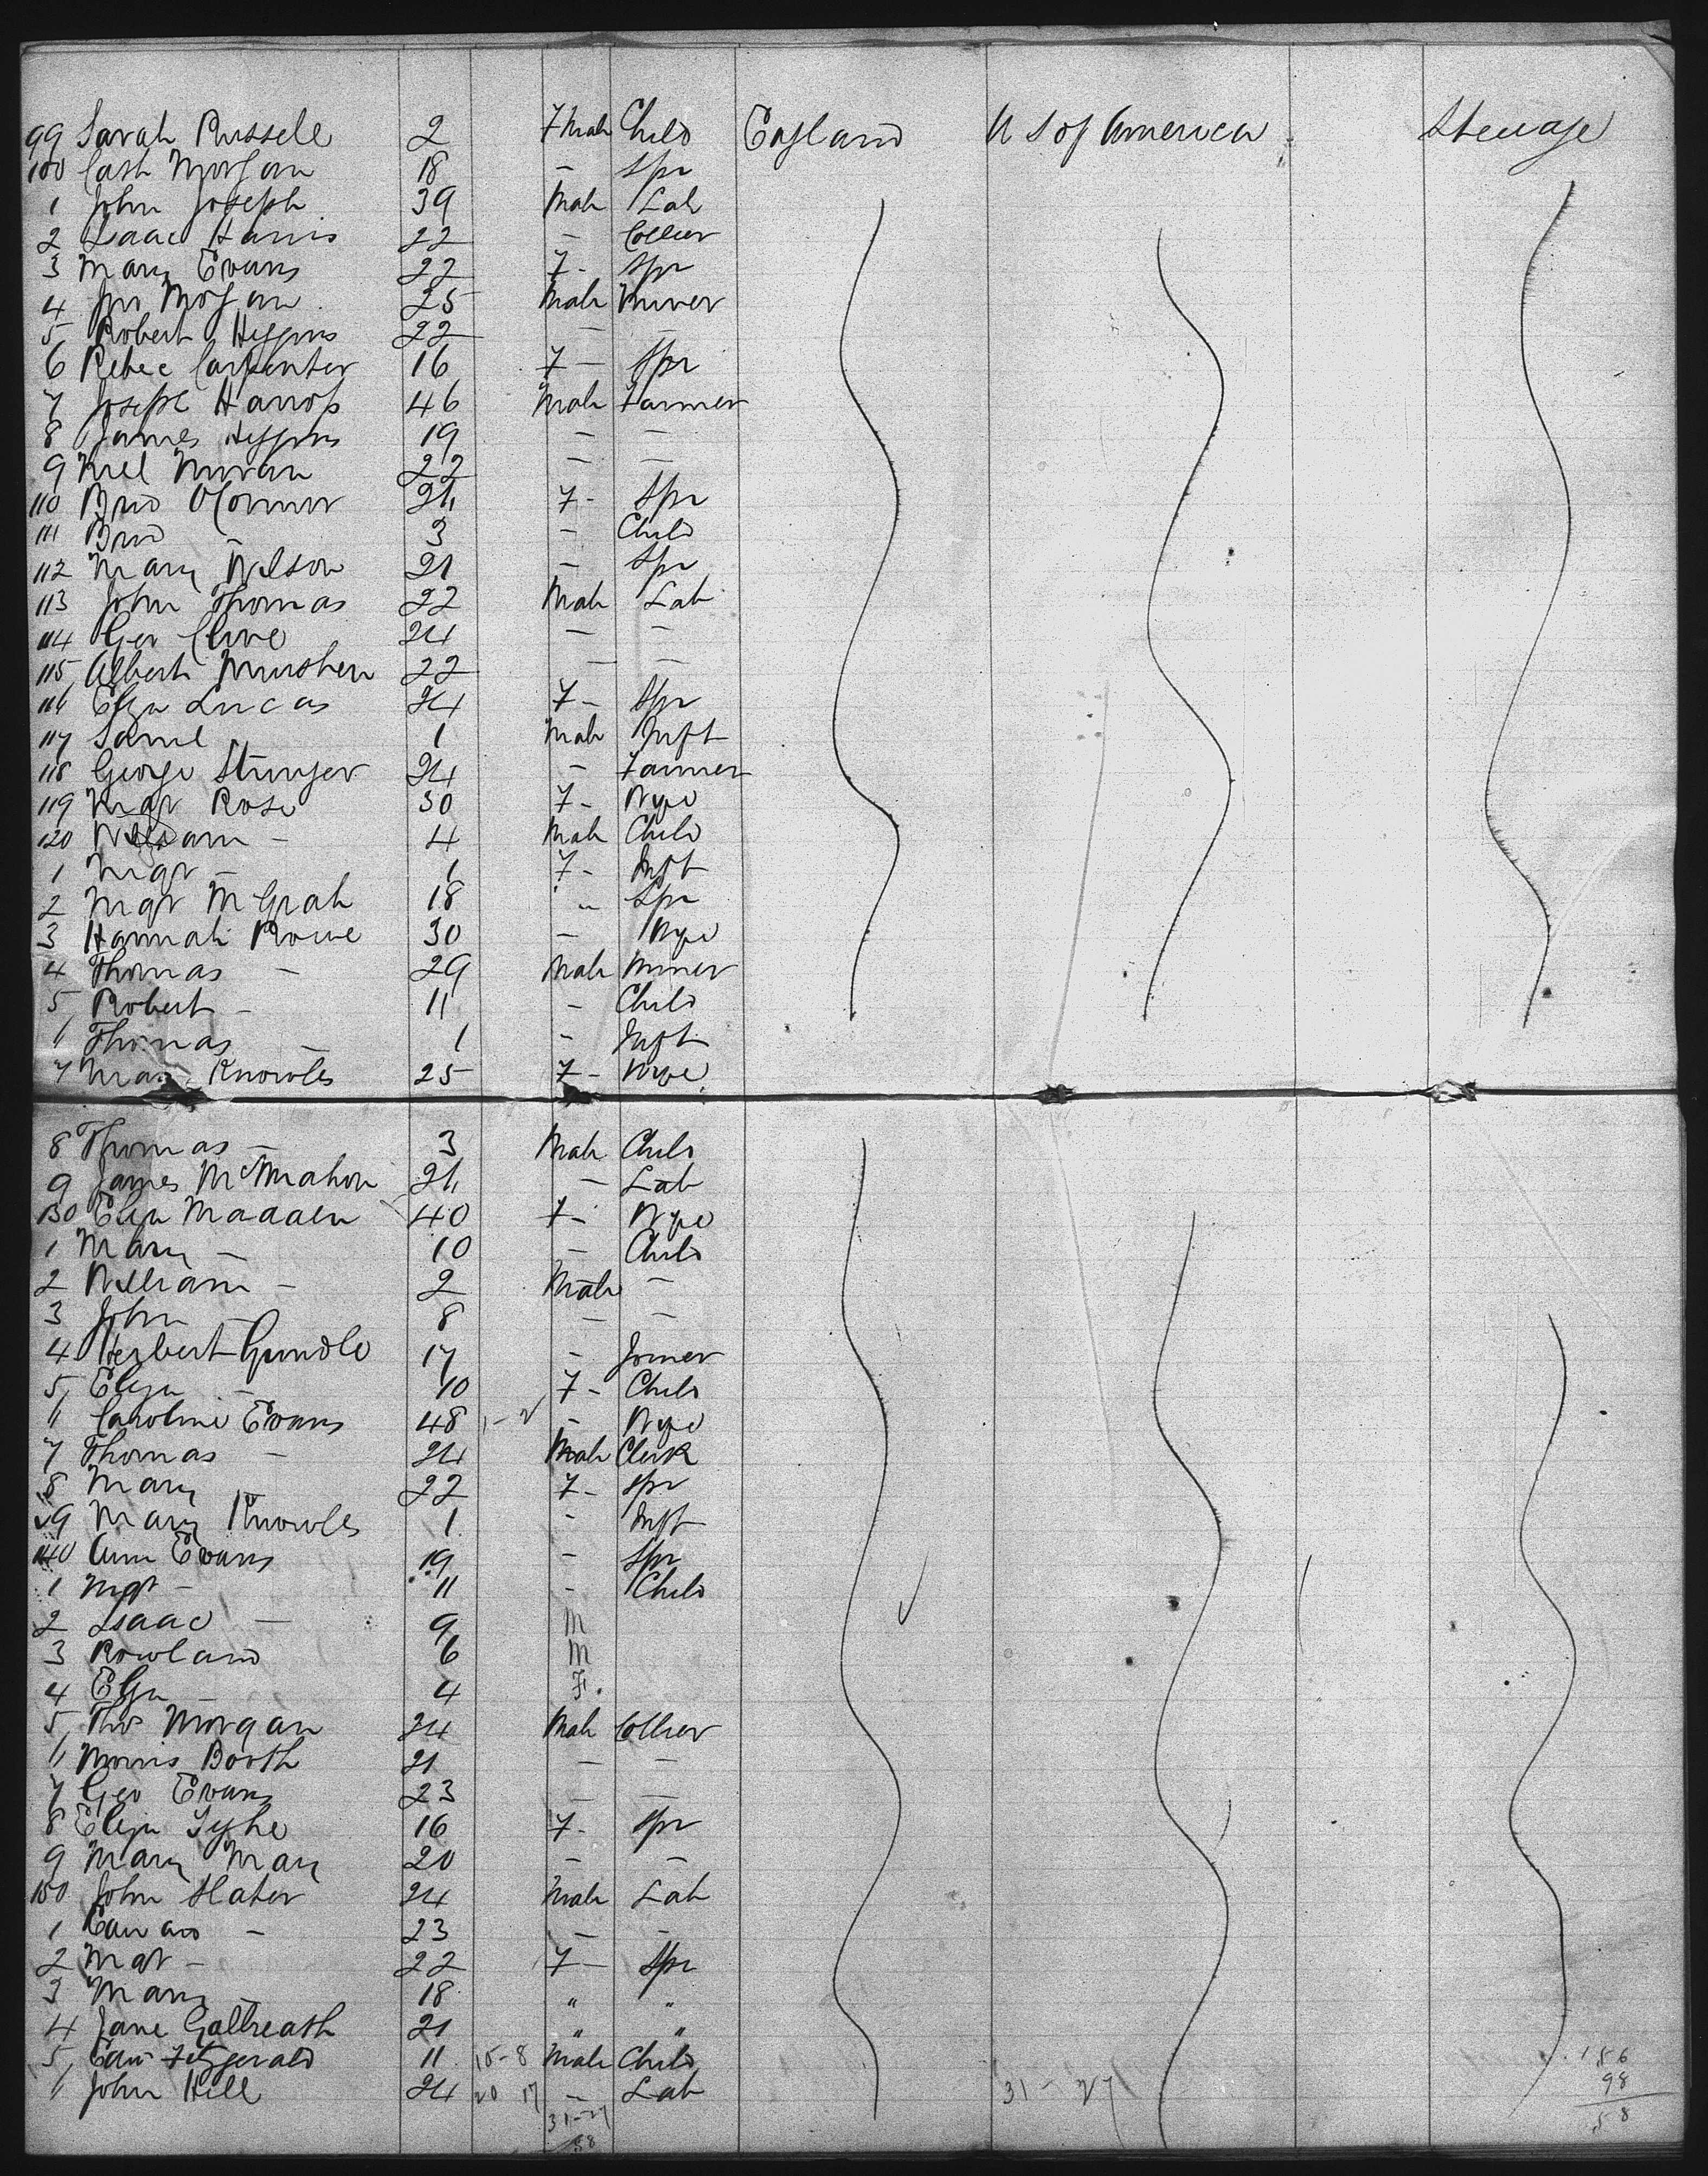 99 Sarah Russell 2 Fmale Child England U S of America Steerage
100 Cath Morgan 18 - Spr
1 John Joseph 39 Male Lab
2 Isaac Harris 22 - Collier
3 Mary Evans 22 F- Spr
4 Jno Morgan 25 Male Miner
5 Robert Higgins 22 - -
6 Rebec Carpenter 16 F- Spr
7 Joseph Harrop 46 Male Farmer
8 James Higgins 19 - -
9 22 - -
110 Brid OConnor 21 F- Spr
111 Brid - 3 - Child
112 Mary Wilson 21 - Spr
113 John Thomas 22 Male Lab
114 Geo Clive 24 - -
115 Albert 22 - -
116 Eliza Lucas 24 F- Spr
117 Saml " 1 Male Inft
118 George Stringer 24 - Farmer
119 Mgt Rose 30 F- Wife
120 William - 4 Male Child
1 Mgt - 1 F- Inft
2 Mgt McGrah 18 " Spr
3 Hannah Rowe 30 - Wife
4 Thomas - 29 Male Miner
5 Robert - 11 - Child
6 Thomas - 1 - Inft
7 Mary Knowles 25 F- Wife
8 Thomas - 3 Male Child
9 James McMahon 21 - Lab
130 Eliza Madden 40 F- Wife
1 Mary - 10 - Child
2 William - 2 Male -
3 John - 8 - -
4 Herbert Grundle 17 - Joiner
5 Eliza - 10 F- Child
6 Caroline Evans 48 1-2 - Wife
7 Thomas - 24 Male Clerk
8 Mary - 22 F- Spr
39 Mary Knowles 1 - Inft
140 Ann Evans 19 - Spr
1 Mgt - 11 - Child
2 Isaac - 9 M
3 Rowland 6 M
4 Eliza - 4 F.
5 Thos Morgan 24 Male Collier
6 Morris Booth 21 - -
7 Geo Evans 23 - -
8 Eliza Tyhe 16 F- Spr
9 Mary May 20 - -
150 John Slater 24 Male Lab
1 Edward - 23 - -
2 Mgt - 22 F- Spr
3 Mary - 18 " "
4 Jane Galbreath 21 " "
5 Edwd Fitzgerald 11 15-8 Male Child 156
6 John Hill 24 20 17 - Lab 31-27 98
31-27 58
58